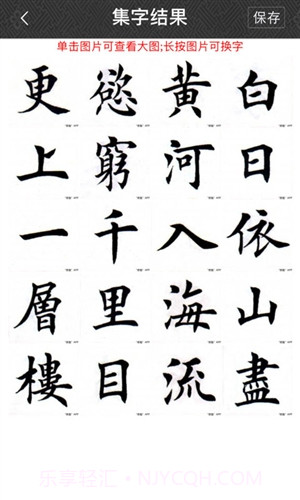 集字结果
保存
单击图片可查看大图;长按图片可换字
白日依山盡
黄河入海流
慾窮千里目
更上一層樓
乐享轻汇·NJYCQH.COM